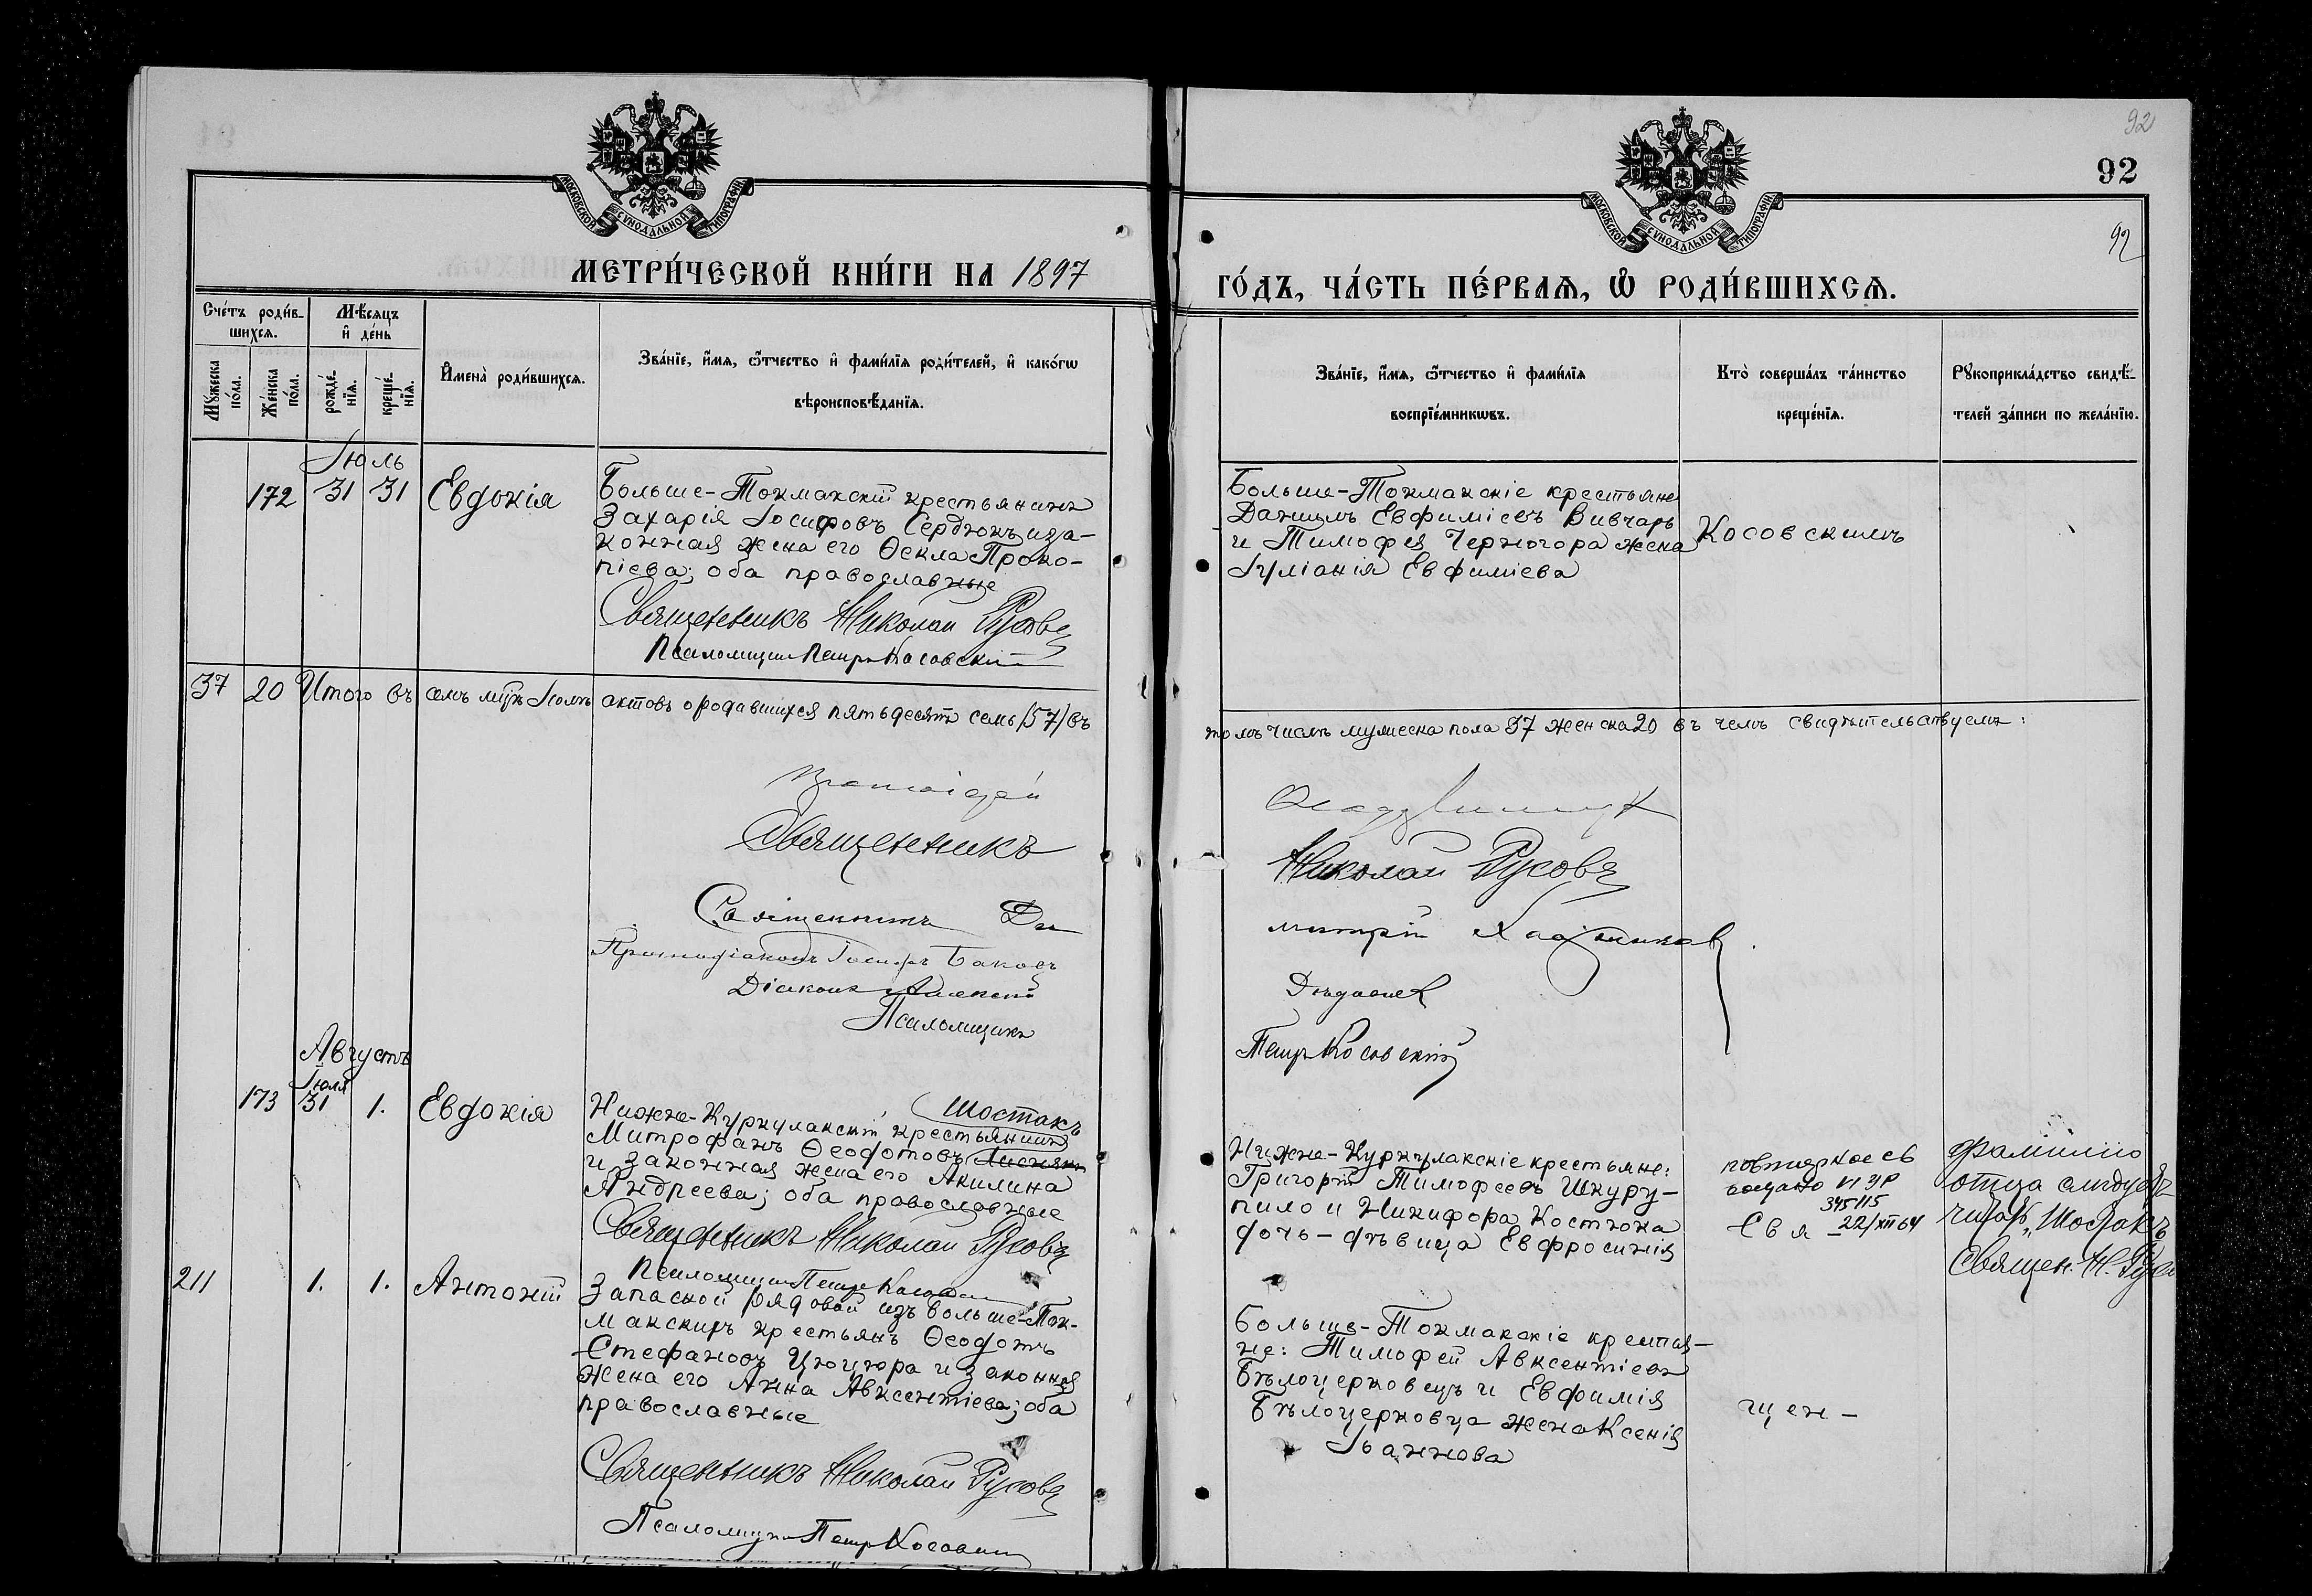 92
92
МОСКОВСКОЙ СУНОДАЛЬНОЙ ТИПОГРАФІИ
МОСКОВСКОЙ СУНОДАЛЬНОЙ ТИПОГРАФІИ
92
МЕТРИ́ЧЕСКОЙ КНИ́ГИ НА 1897
ГО́ДЪ, ЧА́СТЬ ПЕ́РВАѦ, Ѡ РОДИ́ВШИХСѦ.
Сче́тъ роди́в-
шихсѧ.
Мѣ́сяцъ
и҆ де́нь
Мꙋ́жеска
по́ла.
Же́нска
по́ла.
рожде́-
нїѧ.
креще́-
нїѧ.
И҆мена̀ роди́вшихсѧ.
Зва́нїе, и҆́мѧ, ѻ҆́тчество и҆ фами́лїѧ роди́телей, и҆ како́гѡ
вѣроисповѣ́данїѧ.
Зва́нїе, и҆́мѧ, ѻ҆́тчество и҆ фами́лїѧ
воспрїе́мникѡвъ.
Кто̀ соверша́лъ та́инство
креще́нїѧ.
Рꙋкоприкла́дство свидѣ́-
телей за́писи по жела́нїю.
Іюль
172 31 31 Евдокія
Больше-Токмакскій крестьянинъ
Захарія Іосифовъ Сердюкъ и за-
конная жена его Ѳекла Проко-
піева; оба православные
Священникъ Николай Русовъ
Псаломщикъ Петръ Косовскій
Больше-Токмакскіе крестьяне
Даниилъ Евфиміевъ Вивчарь
и Тимофея Черногора жена
Іуліанія Евфиміева
Косовскимъ
37 20 Итого въ семъ мѣсяцѣ Іюлѣ актовъ о родившихся пятьдесятъ семь (57) въ
томъ числѣ мужеска пола 37 женска 20 въ чемъ свидѣтельствуемъ:
Священникъ
Николай Русовъ
Священникъ Ди
митрій
Протодіаконъ Іосифъ
Діаконъ Алексій
Псаломщикъ
Петръ Косовскій
Августъ
Іюля
173 31 1. Евдокія
Шостакъ
Нижне-Куркулакскій крестьянинъ
Митрофанъ Ѳеодотовъ
и законная жена его Акилина
Андреева; оба православные
Священникъ Николай Русовъ
Псаломщикъ Петръ Косовскій
Нижне-Куркулакскіе крестьяне:
Григорій Тимофеевъ Шкуру-
пило и Никифора Костюка
дочь-дѣвица Евфросинія
повторное св
345115
Свя 22/XII 64
Фамилію
отца слѣдуетъ
читать „Шостакъ"
Священ. Н. Русовъ
211 1. 1. Антоній
Запасной рядовой изъ Больше-Ток-
макскихъ крестьянъ Ѳеодотъ
Стефановъ Цюцюра и законная
жена его Анна Авксентіева; оба
православные
Священникъ Николай Русовъ
Псаломщикъ Петръ Косовскій
Больше-Токмакскіе крестья-
не: Тимофей Авксентіевъ
Бѣлоцерковецъ и Евфимія
Бѣлоцерковца жена Ксенія
Іоаннова
щен-